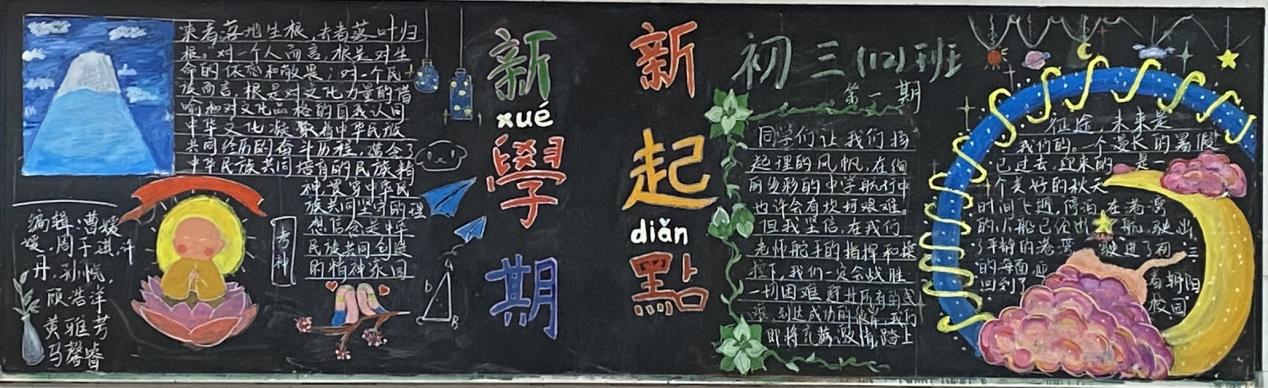 来者落地生根,去者落叶归
根。对一个人而言,根是对生
命的体悟和敬畏;对一个民
族而言,根是对文化力量的借
喻和对文化品格的自我认同
中华文化凝聚着中华民族
共同经历的奋斗历程,蕴含了
中华民族共同培育的民族精
神,贯穿中华民
族共同坚守的理
想信念,是中华
民族共同创造
的精神家园
考神
编辑:曹媛
媛,周子琪,许
丹,孙悦,
顾浩洋
黄雅芳
马馨睿
A
B
新
xué
學
期
新
起
diǎn
點
初三(12)班
第一期
同学们让我们扬
起理的风帆,在绚
丽多彩的中学航行中
也许会有坎坷艰难。
但我坚信,在我们
老师舵手的指挥和操
控下,我们一定会战胜
一切困难,将其所有的
到达成功的彼岸,我们
即将充满激情,踏上
征途,未来是
我们的。一个漫长的暑假
已过去,迎来的是一
个美好的秋天
时间飞逝,停泊在港湾
的小船已经出航,驶出
了平静的港湾 驶进了初三
的海面,迎着朝阳
回到了校园